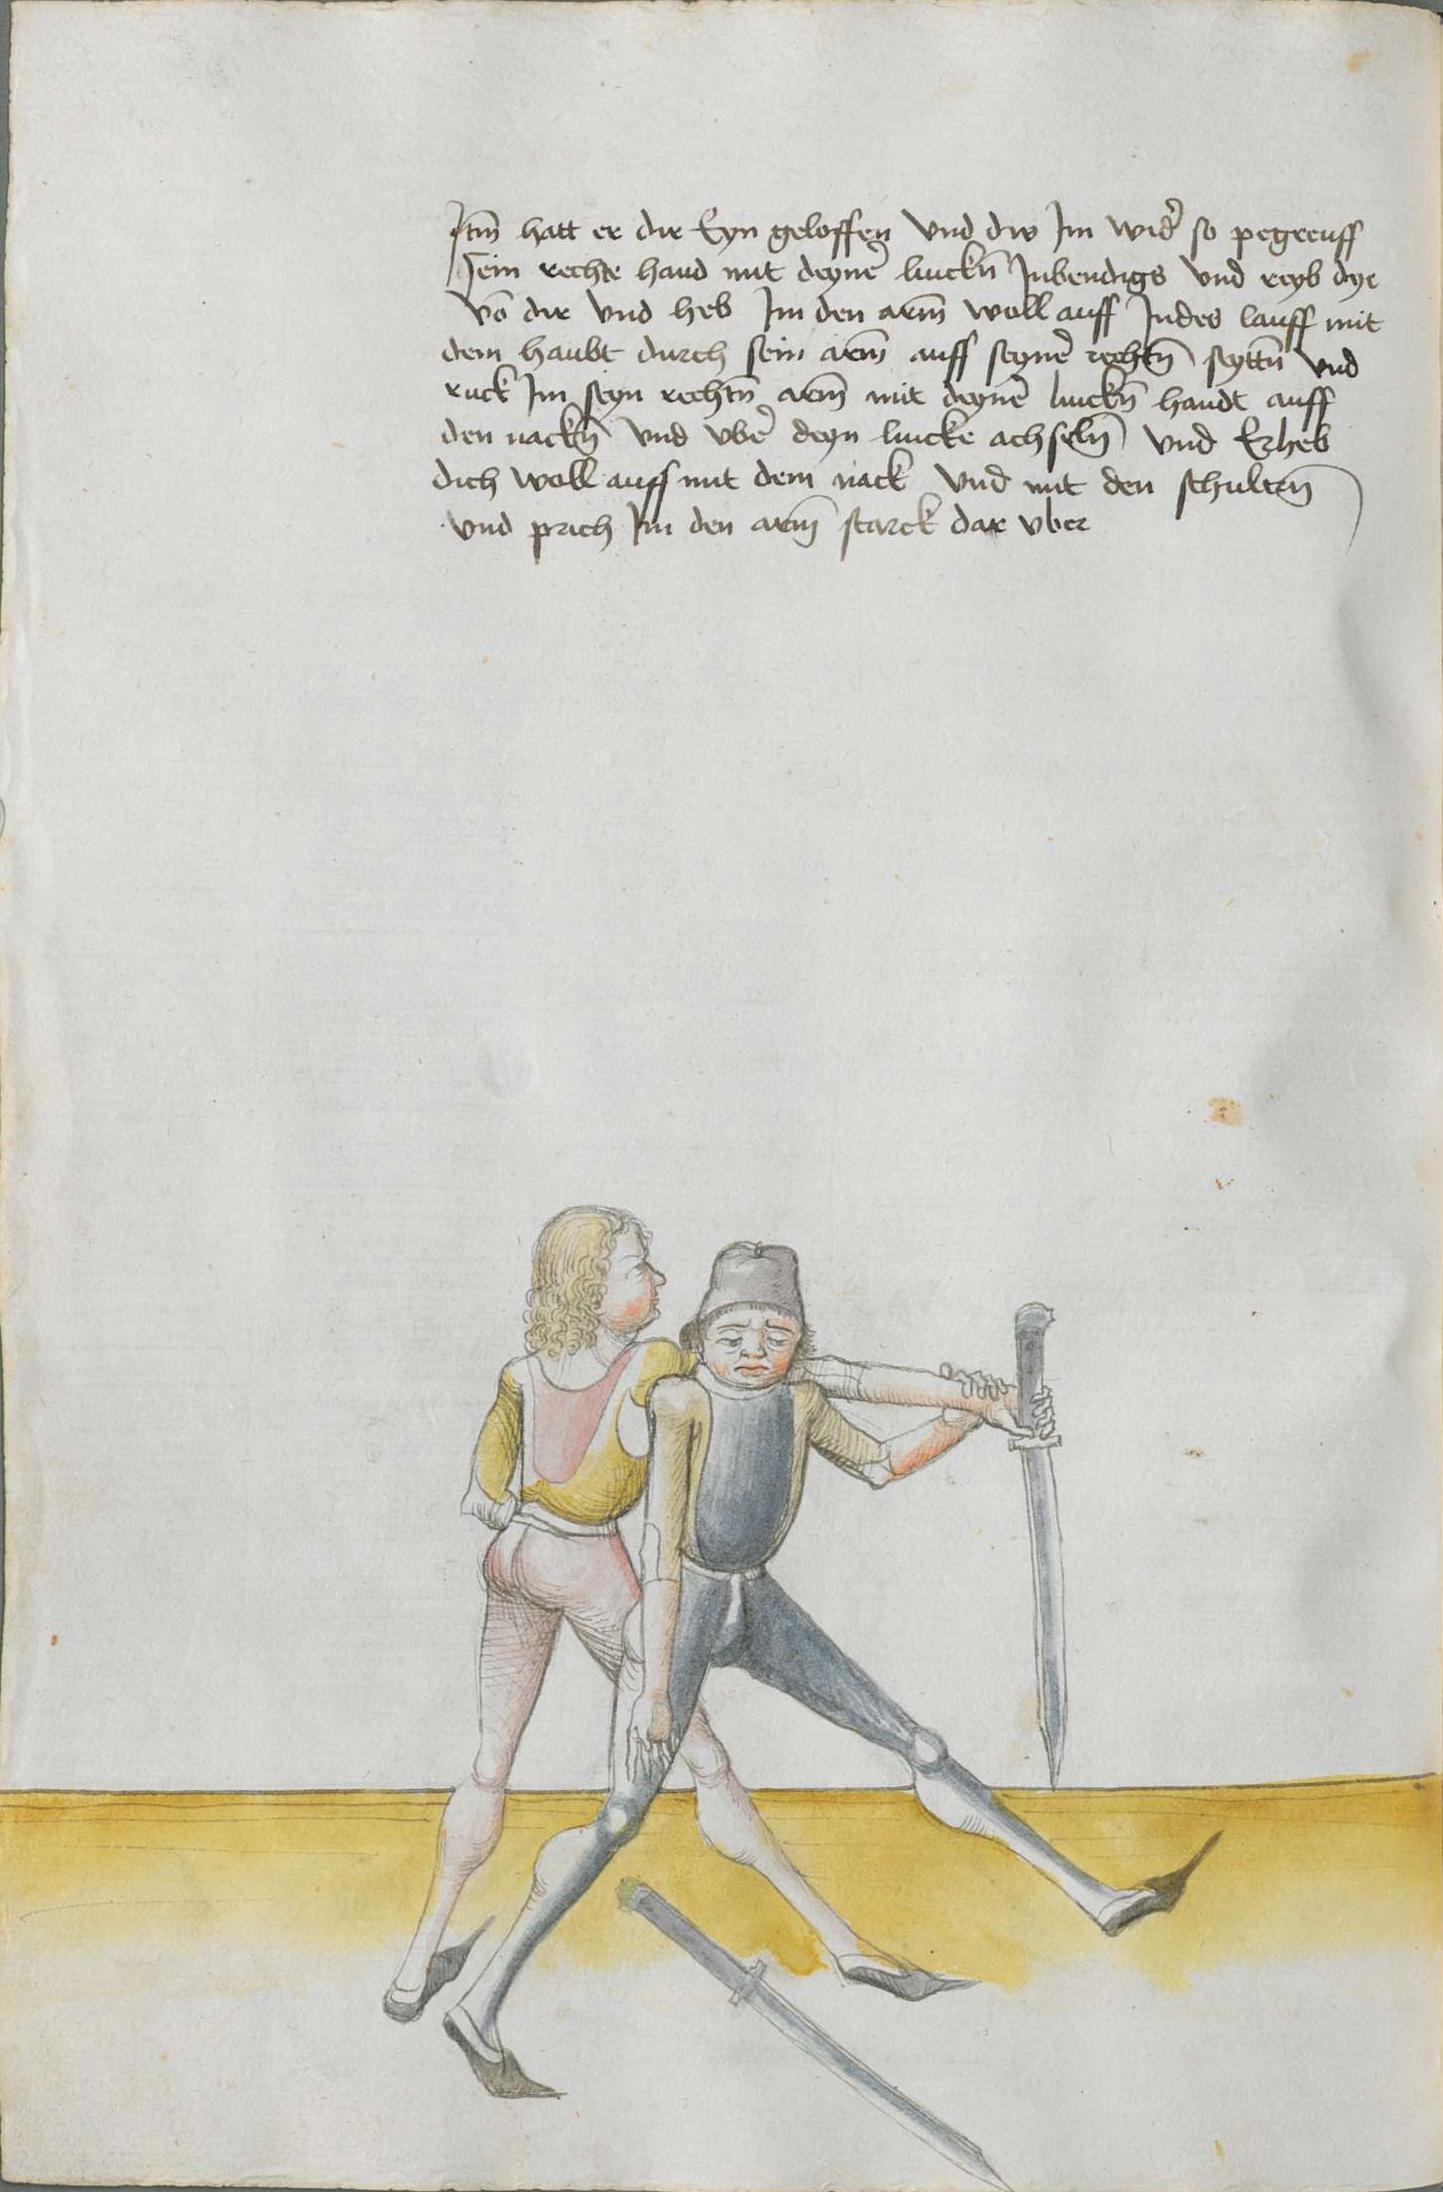 Itm̄ hatt er dir Eyn geloffen Vnd dw Im wid̕ so pegreuff
Sein rechte hand mit deyne᷑ linckn̄ Inbendigs Vnd reyb dye
vō dir Vnd heb Im den arm̄ woll auff Indes lauff mit
dem haubt durch sein arm̄ auff seyne᷑ rechtn̄ seyttn̄ Vnd
ruck Im seyn rechtn̄ arm̄ mit deyne᷑ linckn̄ handt auff
den nackn̄ Vnd vbe᷑ deyn lincke achseln̄ Vnd Erheb
dich woll auff mit dem nack Vnd mit den schultrn̄
Vnd prich Im den arm̄ starck dar vber